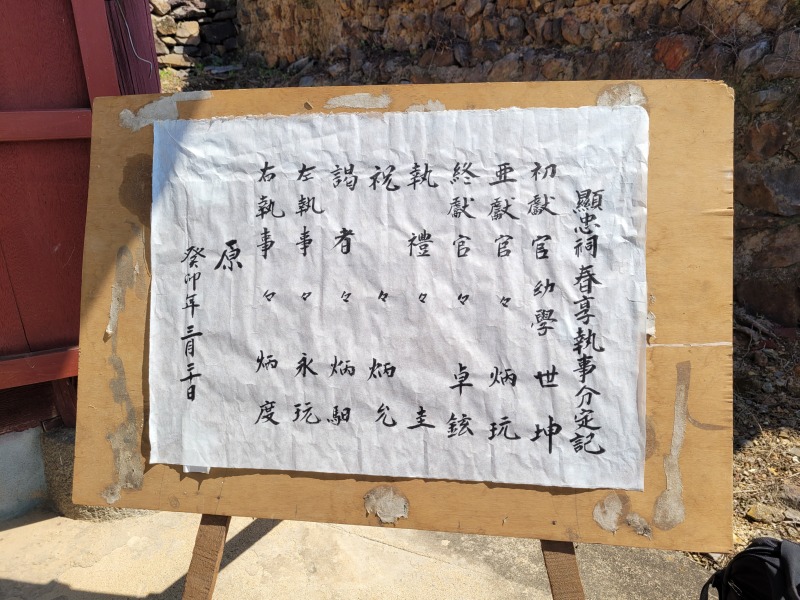 顯忠祠春享執事分定記
初獻官幼學世坤
亞獻官々炳玩
終獻官々卓鉉
執禮々圭
祝々炳允
謁者々炳馹
左執事々永玩
右執事々炳度
原
癸卯年三月二十日